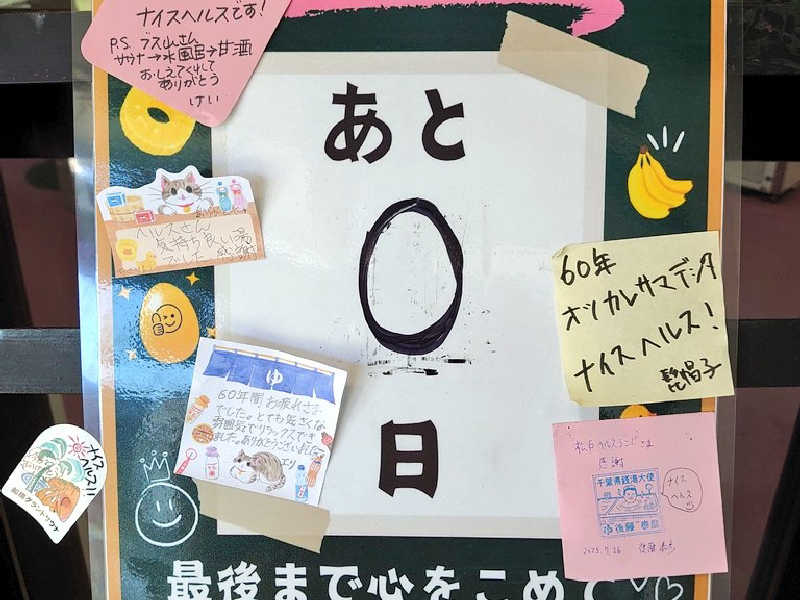 ナイスヘルスです!
P.S. ブス山さん
サウナ→水風呂→甘酒
おしえてくれて
ありがとう
けい
あと
0
日
ヘルスさん
気持ち良い湯
でした
ゆ
60年間お疲れさま
でした。とても気さくな
雰囲気でリラックスでき
ました。ありがとうございました
エリ
ナイス
ヘルス!!
60年
オツカレサマデシタ
ナイスヘルス!
松戸ヘルスランドさま
感謝
千葉県銭湯大使
ナイス
ヘルス
最後まで心をこめて